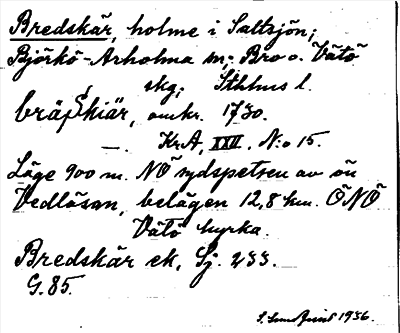 Bredskär, holme i Saltsjön;
Björkö-Arholma sn; Bro o. Vätö
skg; Sthlms l.
bräpskiär, omkr. 1730.
—. KrA, XXII, N:o 15.
Läge 900 m. NÖ sydspetsen av ön
Vedlösan, belägen 12,8 km. ÖNÖ
Vätö kyrka.
Bredskär ek. Sj. 233.
G. 85.
1936.